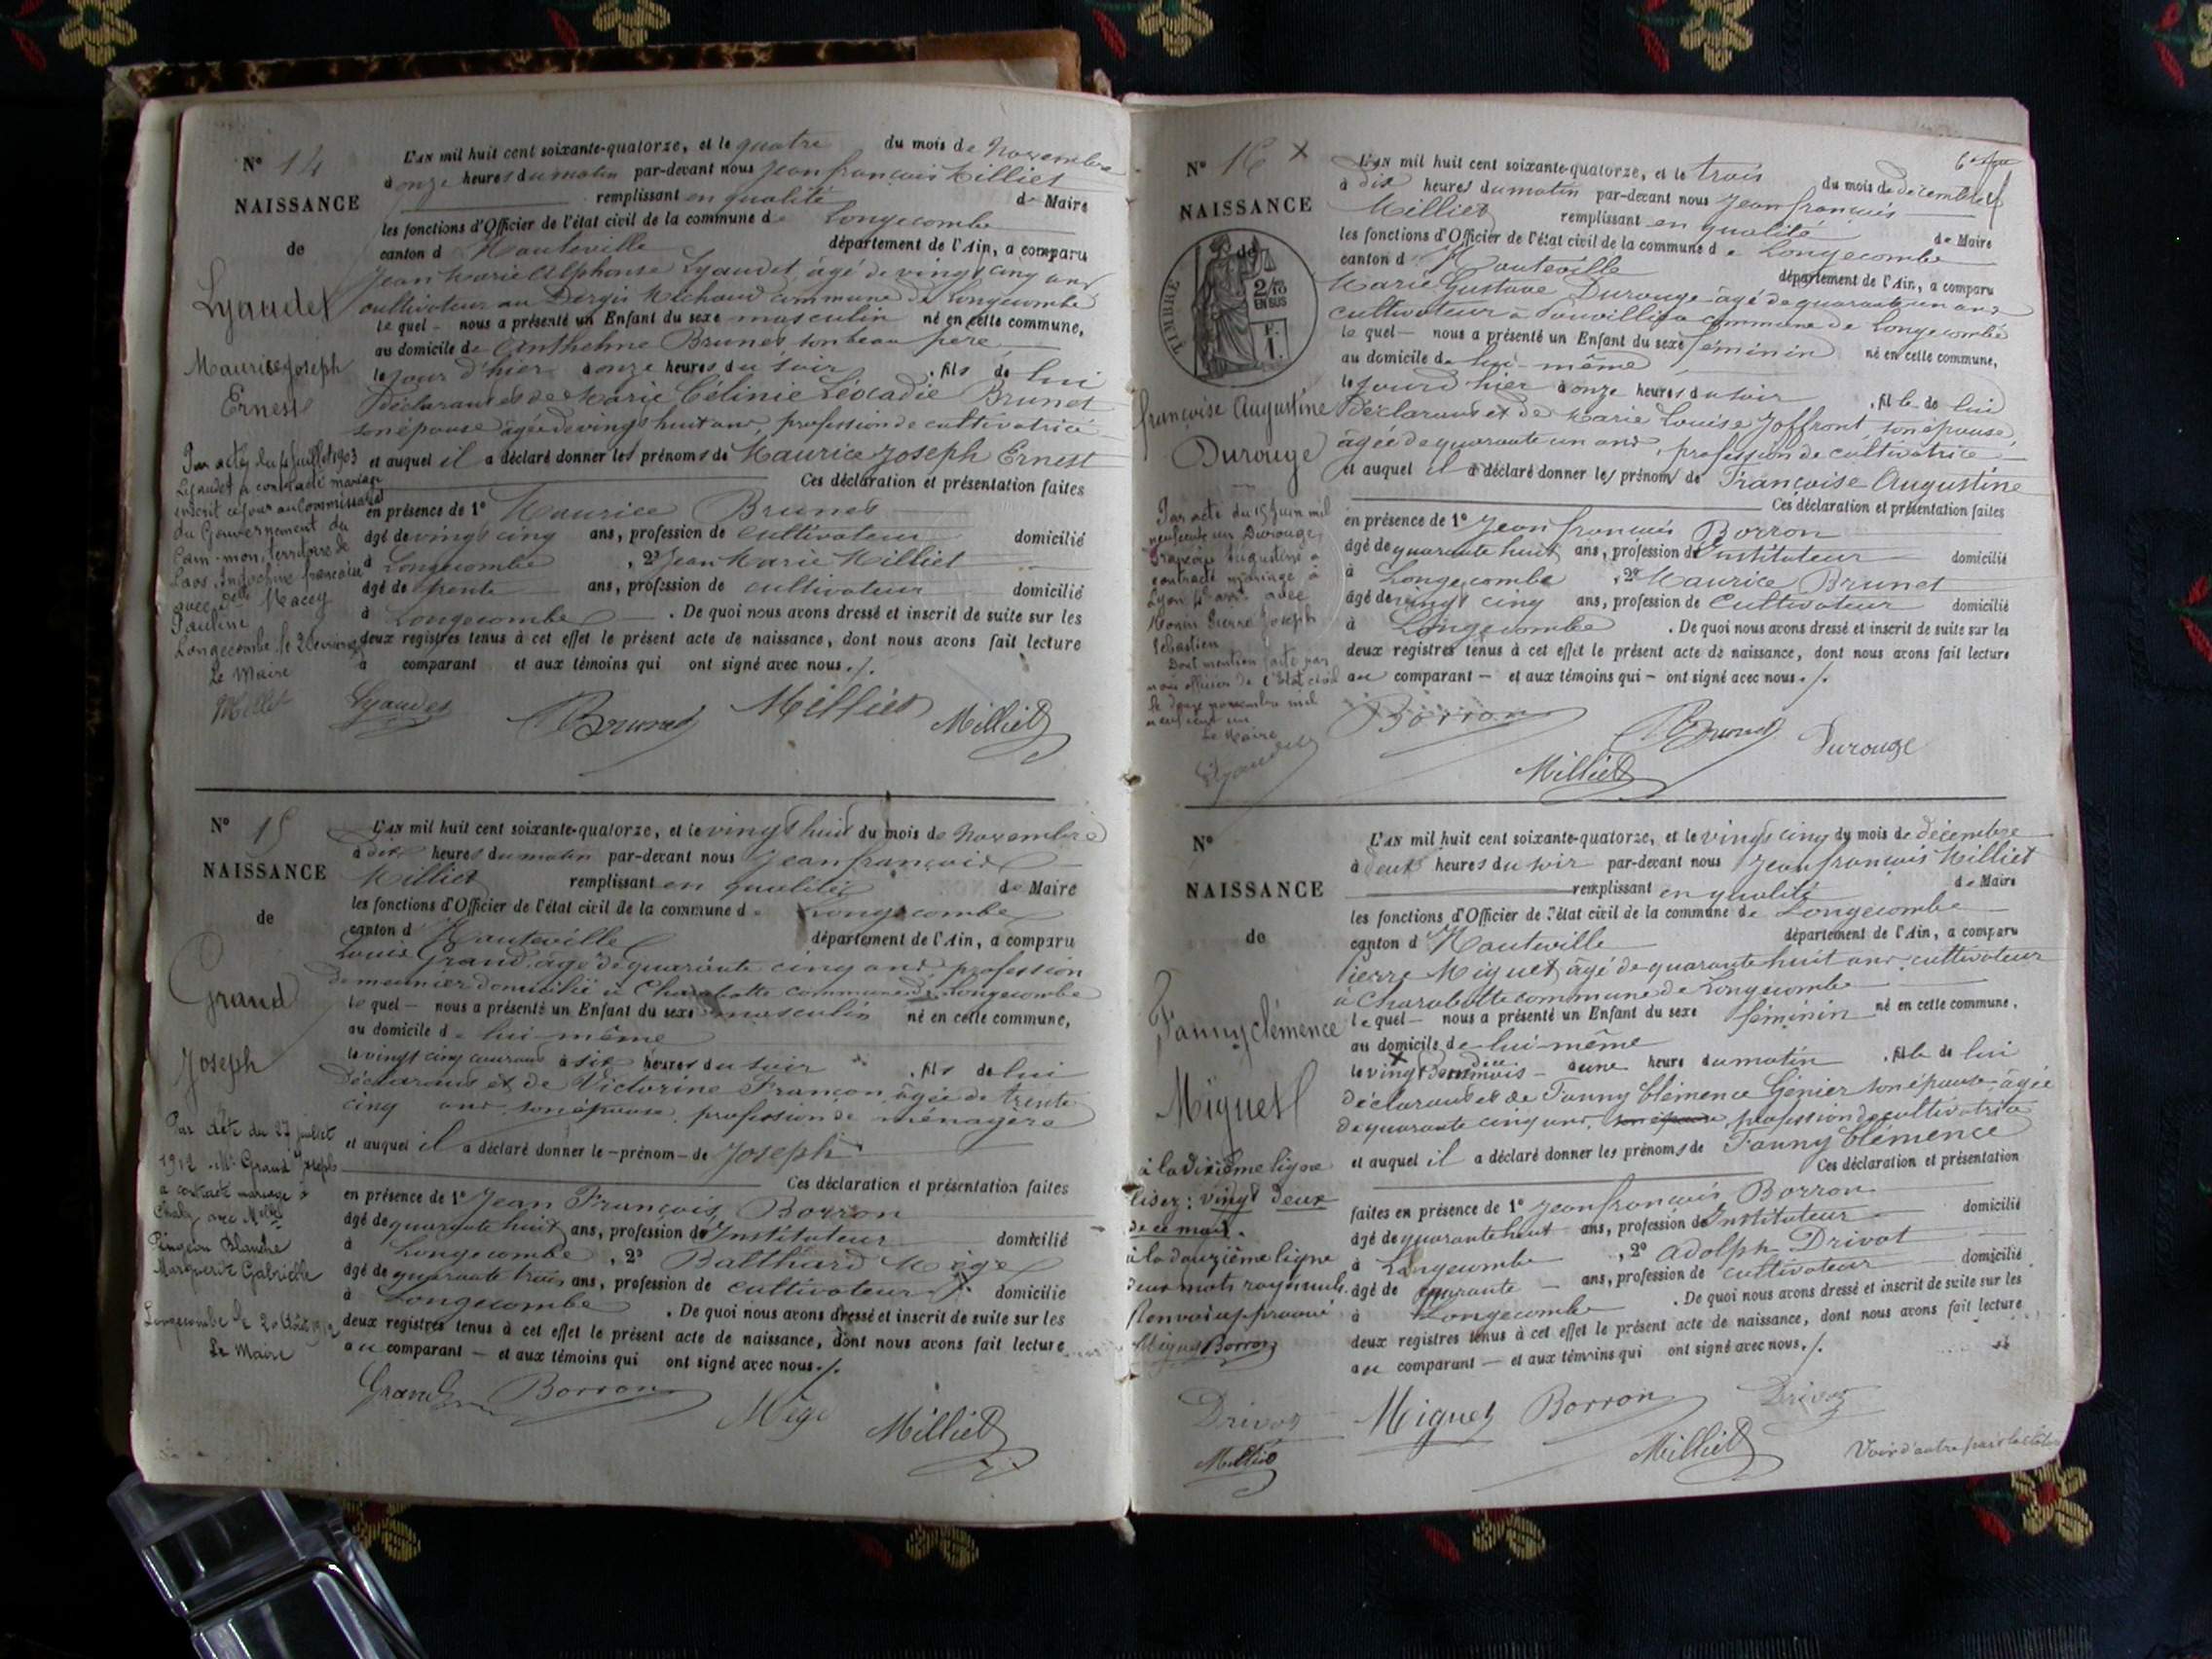 N° 14
NAISSANCE
de
Lyaudet
Maurice Joseph
Ernest
Par acte du juillet 1903
Lyaudet a contracté mariage
inscrit ce jour au Commissariat
du Gouvernement du
Cam-mon, territoire de
Laos, Indochine française
avec Delle Macey
Pauline
Longecombe, le
Le Maire
Millet
L'AN mil huit cent soixante-quatorze, et le quatre du mois de Novembre
à onze heures du matin par-devant nous Jean françois Milliet
remplissant en qualité de Maire
les fonctions d'Officier de l'état civil de la commune de Longecombe
canton d Hauteville département de l'Ain, a comparu
Jean Marie Alphonse Lyaudet, âgé de vingt cinq ans
cultivateur au Dergis Michaud commune de Longecombe
lequel nous a présenté un Enfant du sexe masculin né en cette commune,
au domicile de Anthelme Brunet son beau père
le jour d'hier à onze heures du soir , fils de lui
déclarant et de Marie Célinie Léocadie Brunet
son épouse âgée de vingt huit ans, profession de cultivatrice
et auquel il a déclaré donner les prénoms de Maurice Joseph Ernest
Ces déclaration et présentation faites
en présence de 1° Maurice Brunet
âgé de vingt cinq ans, profession de cultivateur domicilié
à Longecombe , 2° Jean Marie Milliet
âgé de trente ans, profession de cultivateur domicilié
à Longecombe . De quoi nous avons dressé et inscrit de suite sur les
deux registres tenus à cet effet le présent acte de naissance, dont nous avons fait lecture
à comparant et aux témoins qui ont signé avec nous ./.
Lyaudet Brunet Milliet Milliet
N° 15
NAISSANCE
de
Grand
Joseph
Par acte du 27 juillet
1912 Mr Grand Joseph
a contracté mariage à
avec Melle
Pingeon Blanche
Marguerite Gabrielle
Longecombe le 20 Août 1912
Le Maire
L'AN mil huit cent soixante-quatorze, et le vingt huit du mois de Novembre
à dix heures du matin par-devant nous Jean françois
Milliet remplissant en qualité de Maire
les fonctions d'Officier de l'état civil de la commune d Longecombe
canton d Hauteville département de l'Ain, a comparu
Louis Grand, âgé de quarante cinq ans profession
de meunier domicilié à Charabotte commune de Longecombe
lequel — nous a présenté un Enfant du sexe masculin né en cette commune,
au domicile de lui-même
le vingt cinq courant à six heures du soir , fils de lui
déclarant et de Victorine Françon, âgée de trente
cinq ans, son épouse, profession de ménagère
et auquel il a déclaré donner le - prénom - de Joseph
Ces déclaration et présentation faites
en présence de 1° Jean François Borron
âgé de quarante huit ans, profession d'Instituteur domicilié
à Longecombe , 2° Balthard Mège
âgé de quarante trois ans, profession de cultivateur domicilié
à Longecombe . De quoi nous avons dressé et inscrit de suite sur les
deux registres tenus à cet effet le présent acte de naissance, dont nous avons fait lecture
au comparant — et aux témoins qui ont signé avec nous ./.
Grand Borron Mège Milliet
N° 16 X
NAISSANCE
de
TIMBRE
2/10
EN SUS
F.
1.
françoise Augustine
Durouge
Par acte du 15 Juin mil
neuf cent un Durouge
Françoise Augustine a
contracté mariage à
Lyon arrt avec
Monin Pierre Joseph
Sébastien
Dont mention faite par
nous officier de l'Etat civil
le douze novembre mil
neuf cent un
Le Maire
Lyaudet
L'AN mil huit cent soixante-quatorze, et le trois du mois de décembre
à dix heures du matin par-devant nous Jean françois
Milliet remplissant en qualité de Maire
les fonctions d'Officier de l'état civil de la commune de Longecombe
canton d Hauteville département de l'Ain, a comparu
Marie Gustave Durouge âgé de quarante un ans
cultivateur à commune de Longecombe
lequel — nous a présenté un Enfant du sexe féminin né en cette commune,
au domicile de lui-même
le jour d'hier à onze heures du soir , fille de lui
déclarant et de Marie Louise Joffront, son épouse,
âgée de quarante un ans, profession de cultivatrice
et auquel il a déclaré donner les prénoms de Françoise Augustine
Ces déclaration et présentation faites
en présence de 1° Jean françois Borron
âgé de quarante huit ans, profession d'Instituteur domicilié
à Longecombe , 2° Maurice Brunet
âgé de vingt cinq ans, profession de Cultivateur domicilié
à Longecombe . De quoi nous avons dressé et inscrit de suite sur les
deux registres tenus à cet effet le présent acte de naissance, dont nous avons fait lecture
au comparant — et aux témoins qui — ont signé avec nous ./.
Borron Brunet Durouge
Milliet
N°
NAISSANCE
de
Fanny clémence
Miguet
à la dixième ligne
lisez : vingt deux
de ce mois.
à la douzième ligne
deux mots rayés nuls.
Renvoi approuvé
Miguet Borron
Drivot
Milliet
L'AN mil huit cent soixante-quatorze, et le vingt cinq du mois de décembre
à deux heures du soir par-devant nous Jean françois Milliet
remplissant en qualité de Maire
les fonctions d'Officier de l'état civil de la commune de Longecombe
canton d Hauteville département de l'Ain, a comparu
Pierre Miguet, âgé de quarante huit ans, cultivateur
à Charabotte commune de Longecombe
lequel — nous a présenté un Enfant du sexe féminin né en cette commune,
au domicile de lui-même
X
le vingt deux de ce mois - à une heure du matin , fille de lui
déclarant et de Fanny Clémence Génier son épouse âgée
de quarante cinq ans, son épouse, profession de cultivatrice
et auquel il a déclaré donner les prénoms de Fanny Clémence
Ces déclaration et présentation
faites en présence de 1° Jean françois Borron
âgé de quarante huit ans, profession d'Instituteur domicilié
à Longecombe , 2° Adolph Drivot
âgé de quarante ans, profession de cultivateur domicilié
à Longecombe . De quoi nous avons dressé et inscrit de suite sur les
deux registres tenus à cet effet le présent acte de naissance, dont nous avons fait lecture
au comparant — et aux témoins qui ont signé avec nous ./.
Miguet Borron Drivot
Milliet
Voir d'autre part